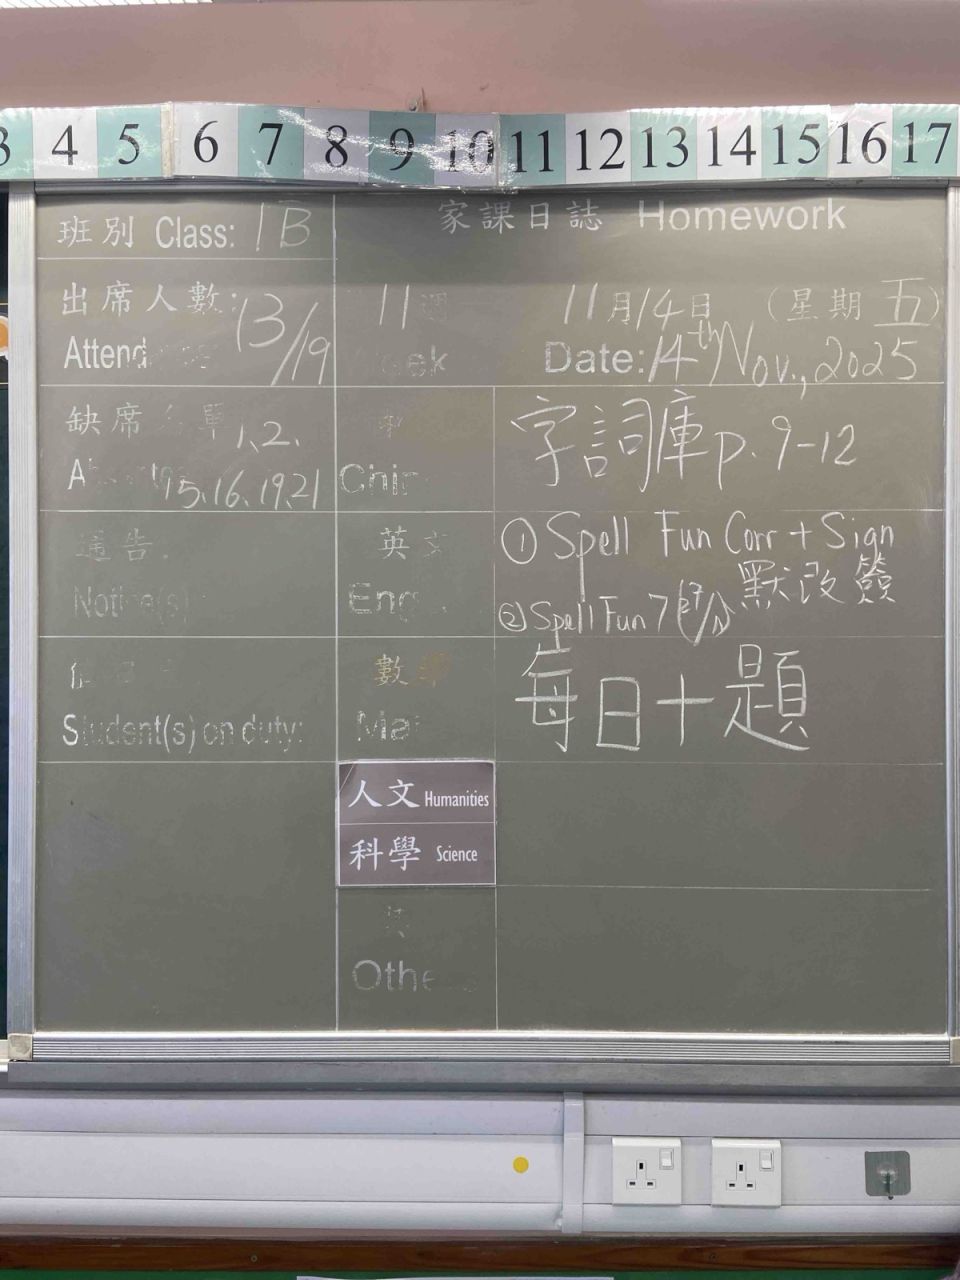 3 4 5 6 7 8 9 10 11 12 13 14 15 16 17
班別 Class: 1B
家課日誌 Homework
出席人數: 13/19
Attend
11週
eek
11月14日 (星期五)
Date: 14th Nov., 2025
缺席 單 1、2、
A 15、16、19、21
Chin
字詞庫 p. 9-12
通告
Notice(s)
英文
Eng
① Spell Fun Corr + Sign
默改簽
② Spell Fun 7
Student(s) on duty:
數學
Ma
每日十題
人文 Humanities
科學 Science
其
Othe